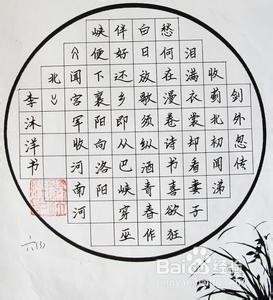 剑外忽传
收蓟北初闻涕
泪满衣裳却看妻子
愁何在漫卷诗书喜欲狂
白日放歌须纵酒青春作
伴好还乡即从巴峡穿巫
峡便下襄阳向洛阳
闻宫军收河南河
北
李沐洋书
六(3)
Baidu 经验